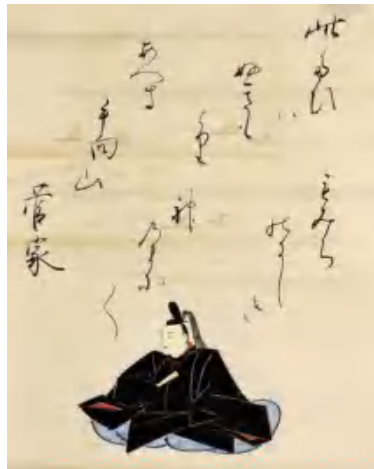 此たひハ
ぬさも
とり
あへす
手向山
もみち
のにしき
神
乃まに
〱
菅家